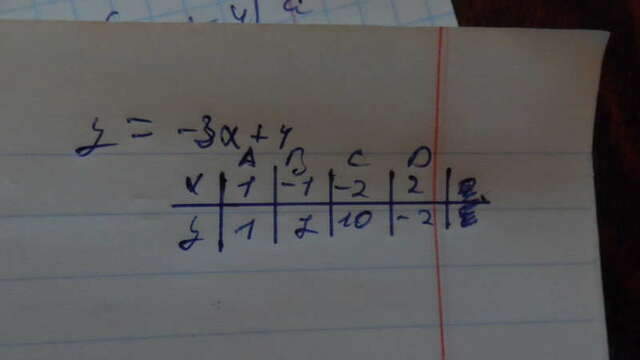 y = -3x+4
A B C D
x | 1 | -1 | -2 | 2 |
y | 1 | 7 | 10 | -2 |